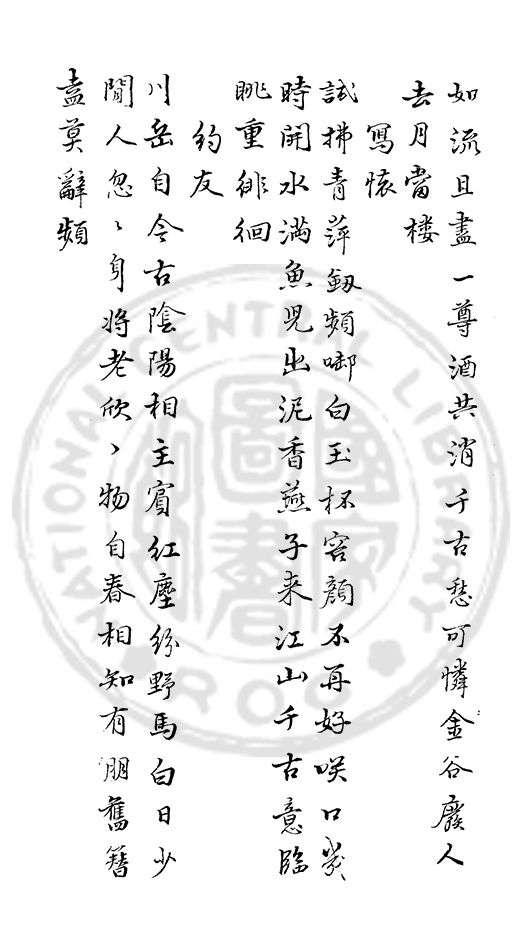 如流且盡一尊酒共消千古愁可憐金谷廢人
去月當楼
寫懷
試拂青萍劔頻啣白玉杯容顔不再好咲口幾
時開水滿魚児出泥香燕子来江山千古意臨
眺重徘徊
約友
川岳自今古陰陽相主賓紅塵紛野馬白日少
閒人忽〻身將老欣〻物自春相知有朋舊簪
盍莫辭頻
NATIONAL CENTRAL LIBRARY
ROC
國家圖書